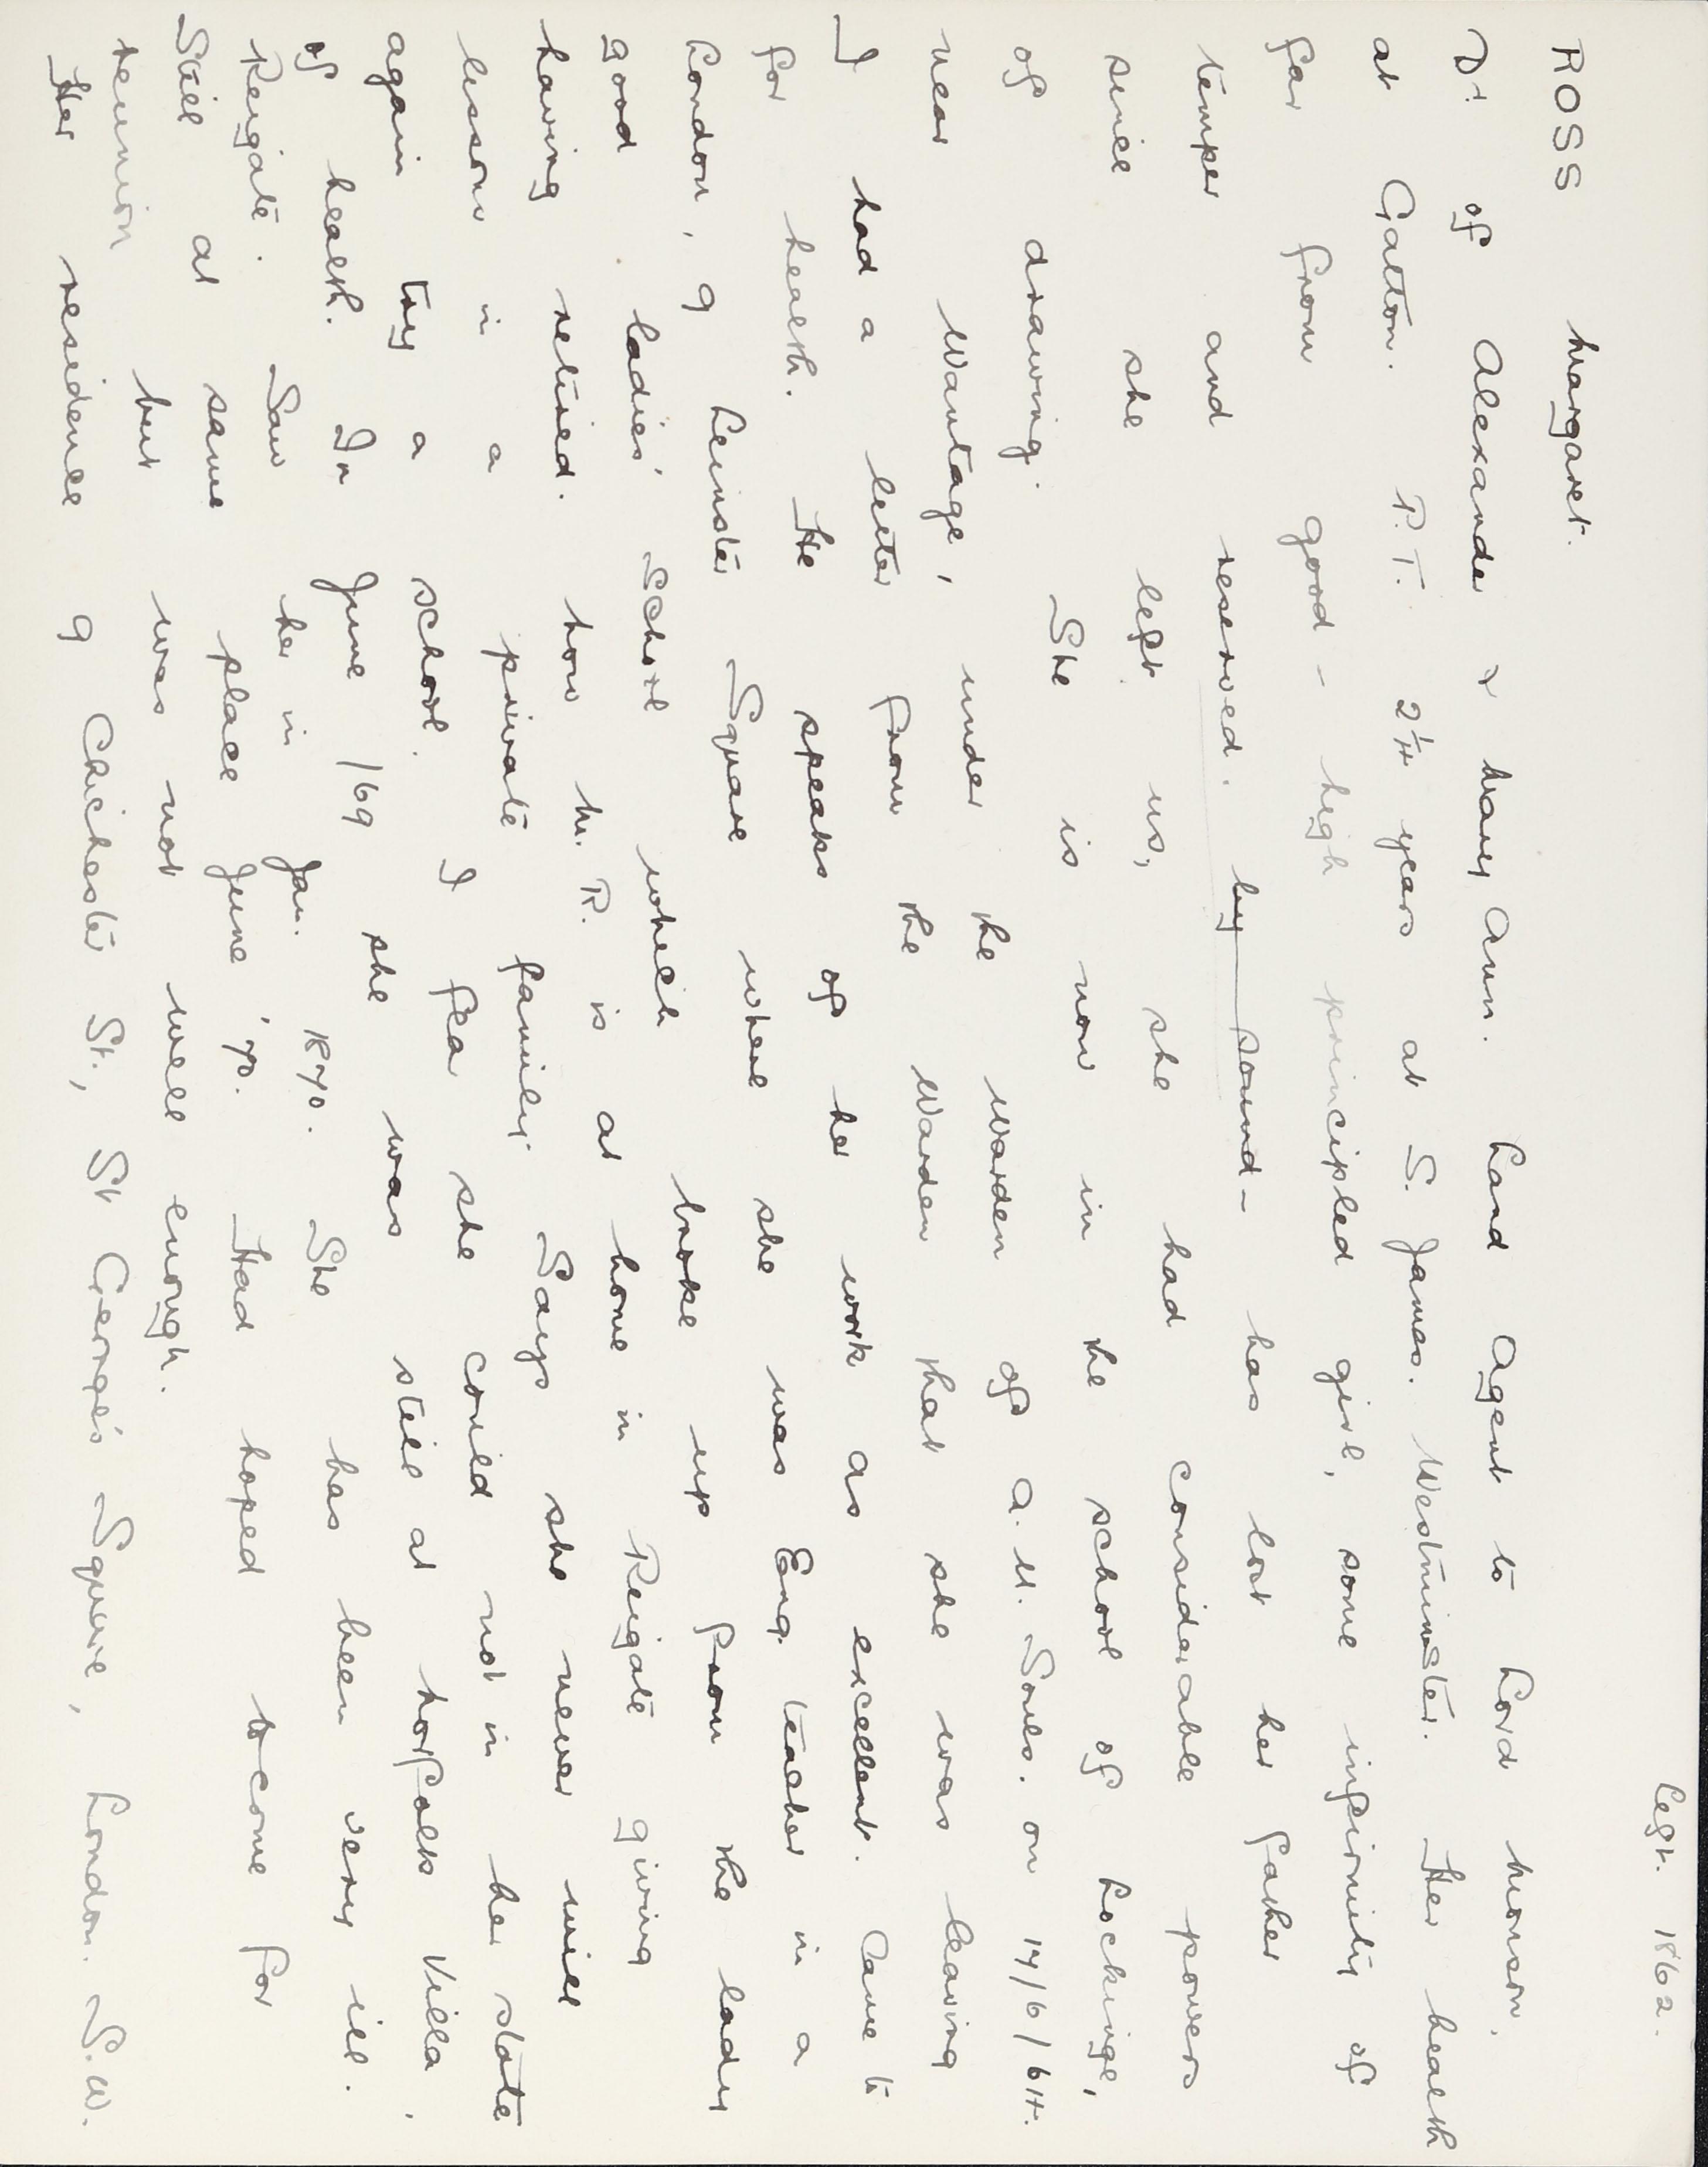 Left. 1862.
ROSS Margaret.
Dr of Alexander & Mary Ann. Land Agent to Lord Monson,
at Gatton. P.T. 2½ years at S. James. Westminster. Her health
far from good - high principled girl, some infirmity of
temper and reserved. by sound- has lost her father
since she left us, she had considerable powers
of drawing. She is now in the school of Lockinge,
near Wantage, under the Warden of A.U. Souls. on 17/6/64.
I had a letter from the Warden that she was leaving
for health. He speaks of her work as excellent. Came to
London, 9 Leinster Square where she was Eng. teacher in a
good ladies' School which broke up from the lady
having retired. Now M. R. is at home in Reigate giving
lessons in a private family. Says she never will
again try a school. I fear she could not in her state
of health. In June /69 she was still at Norfolk Villa,
Reigate. Saw her in Jan. 1870. She has been very ill.
Still at same place June '70. Had hoped to come for
reunion but was not well enough.
Her residence 9 Chichester St., St George's Square, London. S.W.